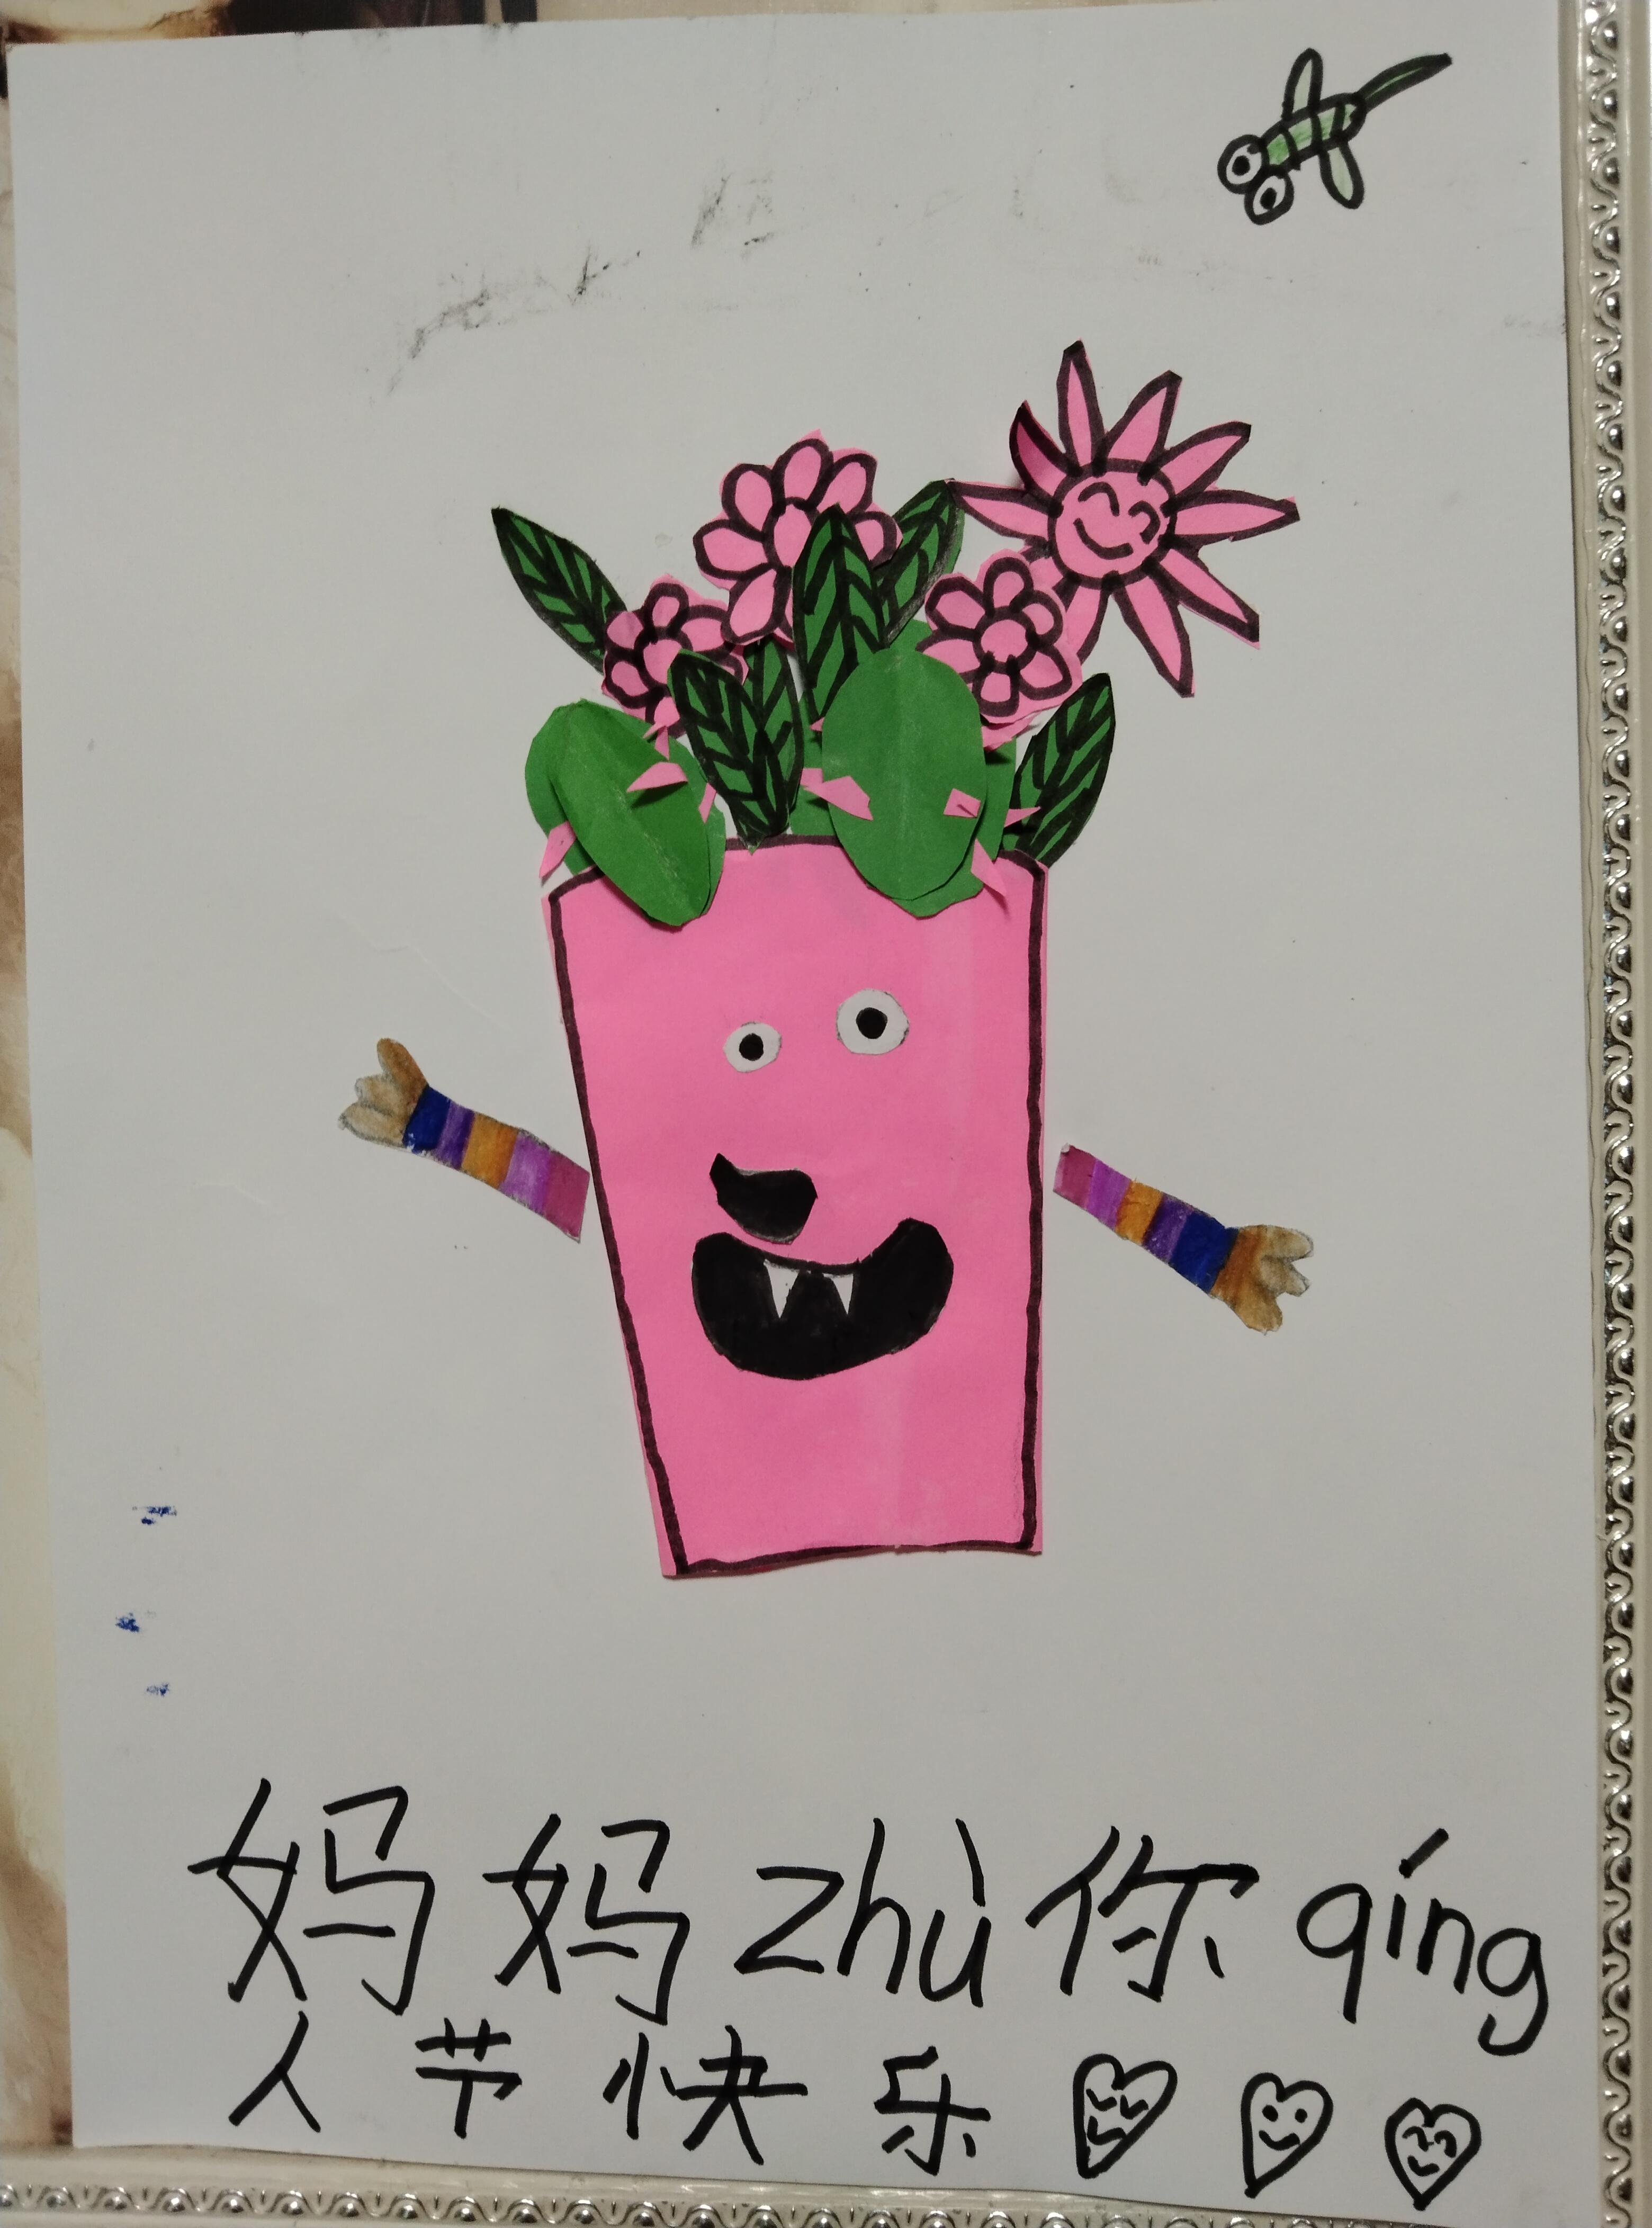 妈妈zhù你qíng
人节快乐